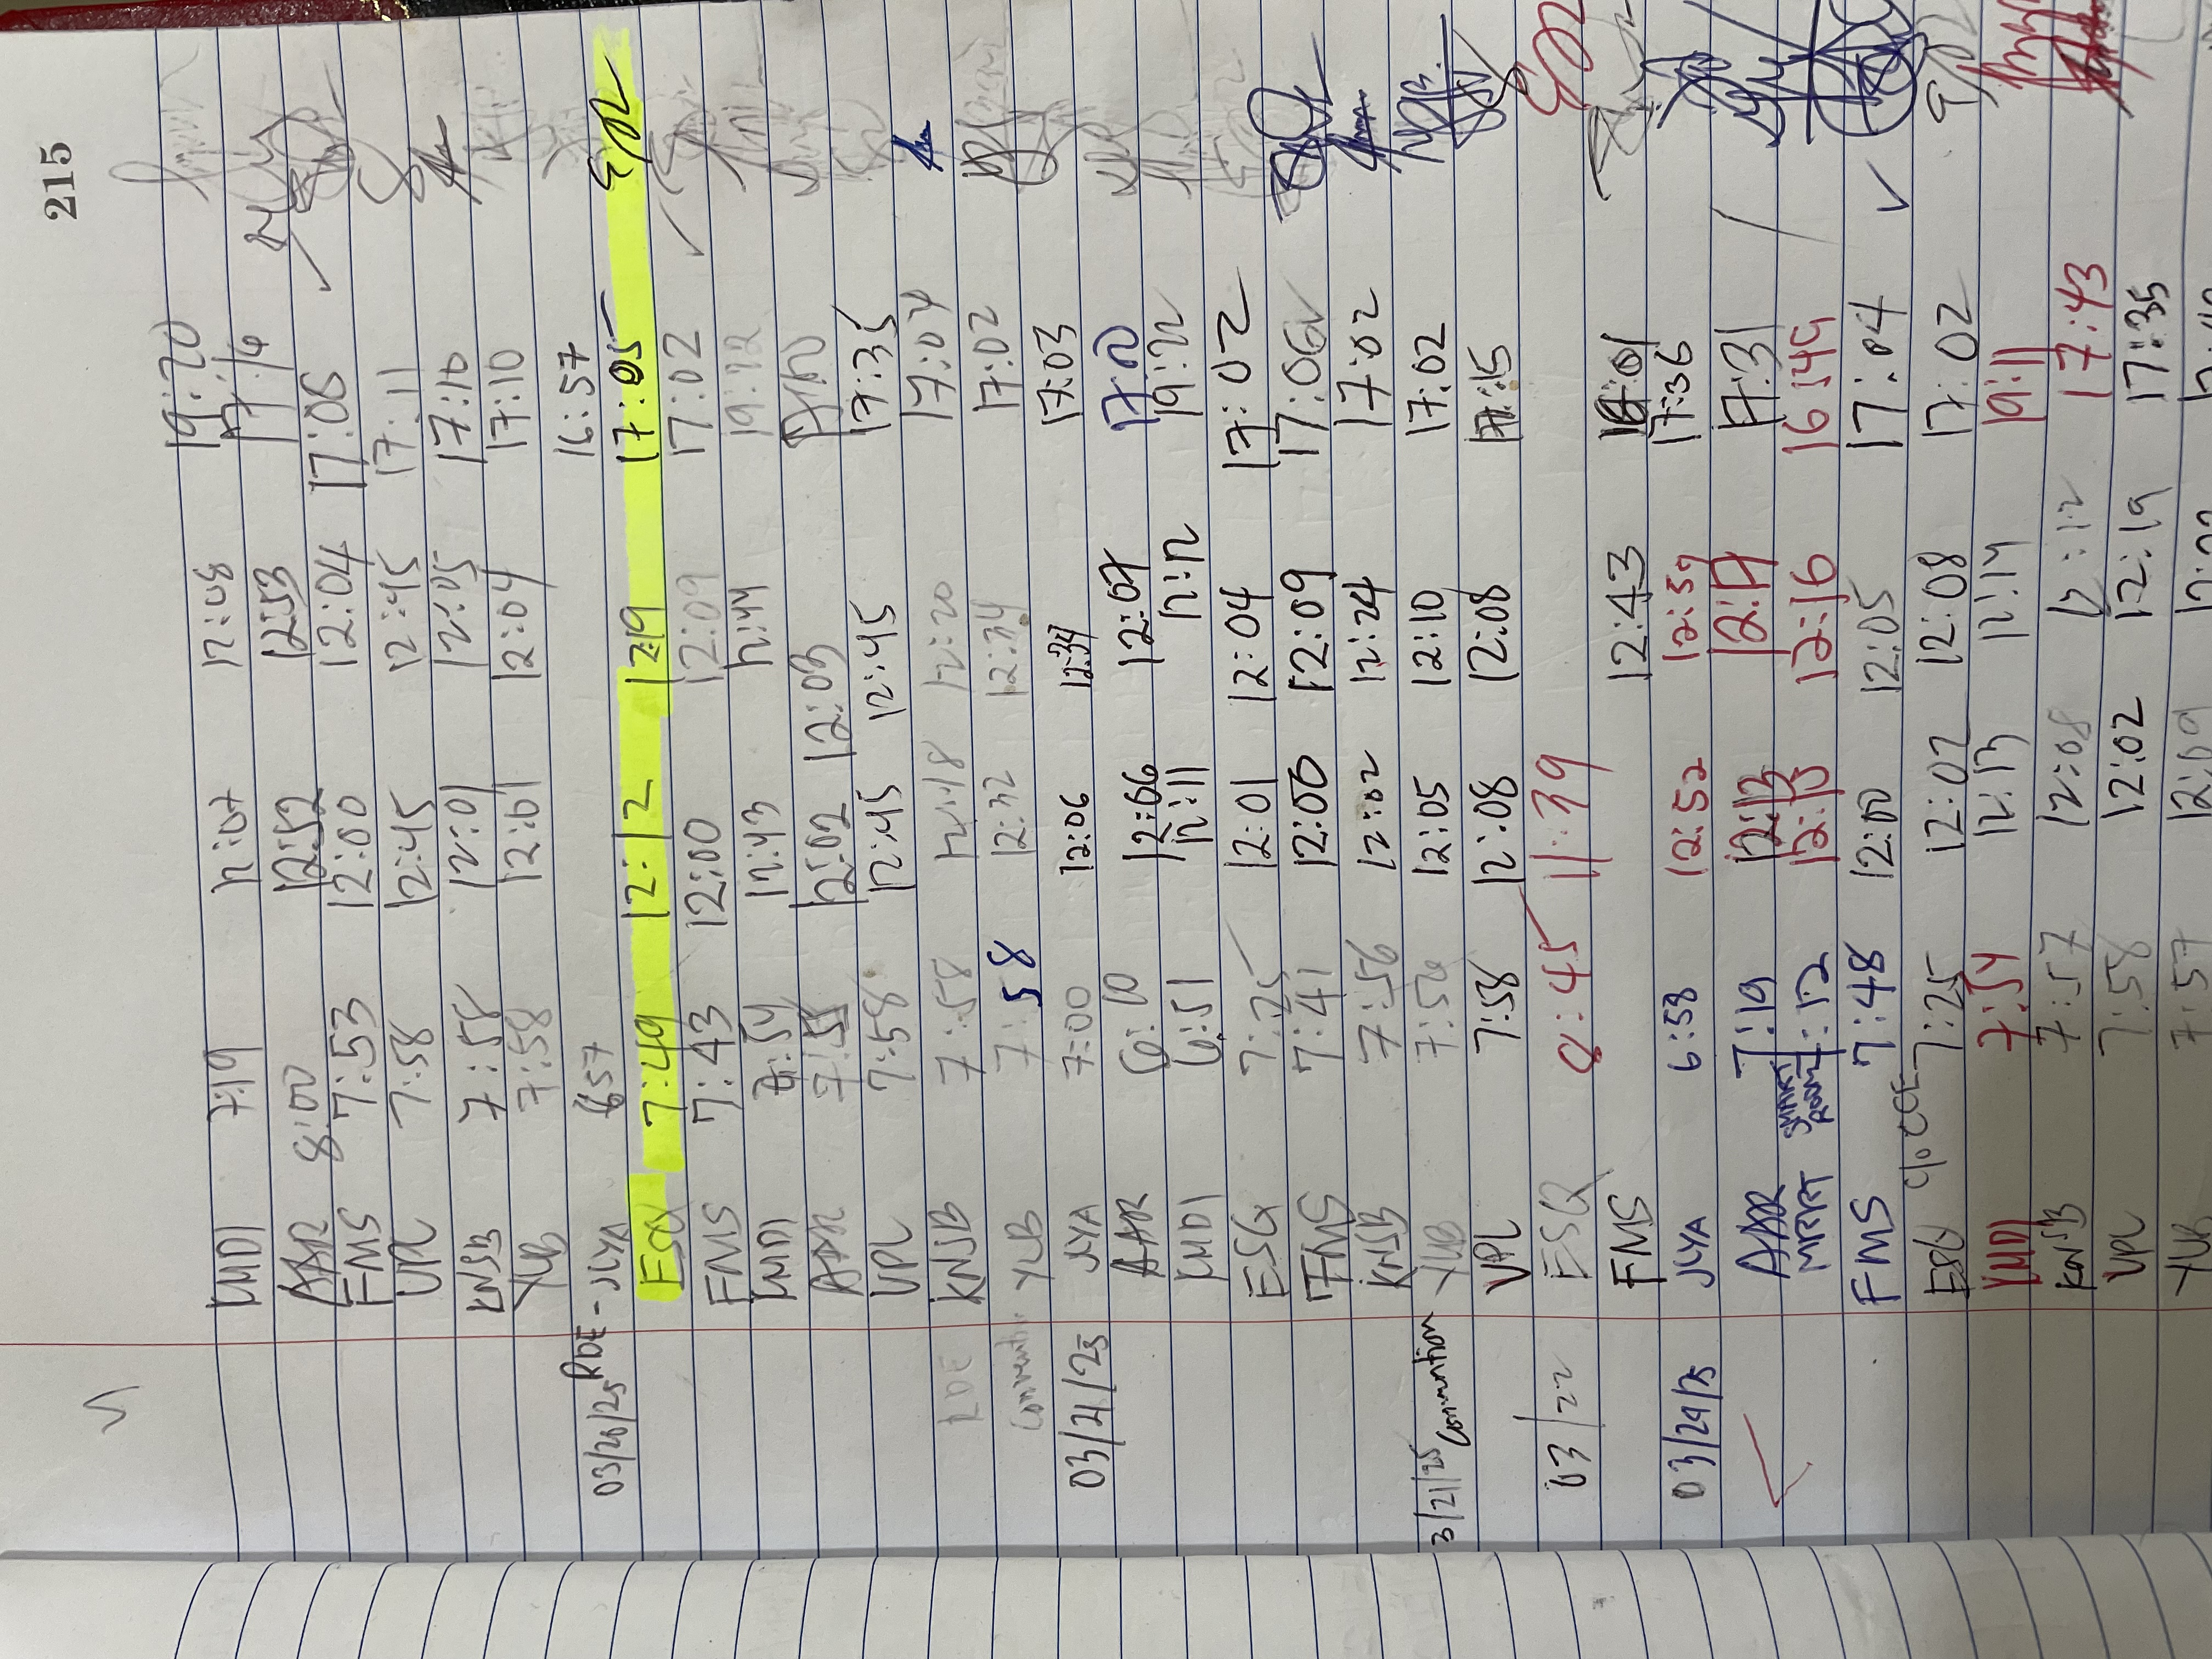 215
7:19 12:07 12:08 19:20
AAR 8:00 12:52 12:53
FMS 7:53 12:00 12:04 17:08
VPL 7:58 12:45 12:45 17:11
KNSB 7:58 12:01 12:05 17:10
YLB 7:58 12:01 12:04 17:10
03/20/25 RDE - JYA 657 16:57
ESG 7:49 12:12 12:19 17:05
FMS 7:43 12:00 12:09 17:02
12:43 12:44 19:12
AAR 12:02 12:03
VPL 7:58 12:45 12:45 17:35
RDE KNJB 7:58 12:18 12:20 17:04
Convention YLB 7:58 12:32 12:34 17:02
03/21/25 JYA 7:00 12:06 12:34 17:03
AAR 6:10 12:06 12:07
6:51 12:11 12:12 19:22
ESG 7:25 12:01 12:04 17:02
FMS 7:41 12:00 12:09 17:06
KNSB 7:56 12:02 12:24 17:02
3/21/25 Convention YLB 7:56 12:05 12:10 17:02
VPL 7:58 12:08 12:08 17:15
03/22 ESG 8:45 11:39
FMS 12:43
03/24/25 JYA 6:58 12:52 12:59 17:36
AAR 7:19 12:13 17:31
MRRT SMART ROOM 12:16 16:49
FMS 7:48 12:00 12:05 17:04
ESG 7:25 12:02 12:08 17:02
7:54 12:13 12:14 19:11
KNSB 7:57 12:08 12:12 17:43
VPL 7:58 12:02 12:19 17:35
YLB 7:57 12:09